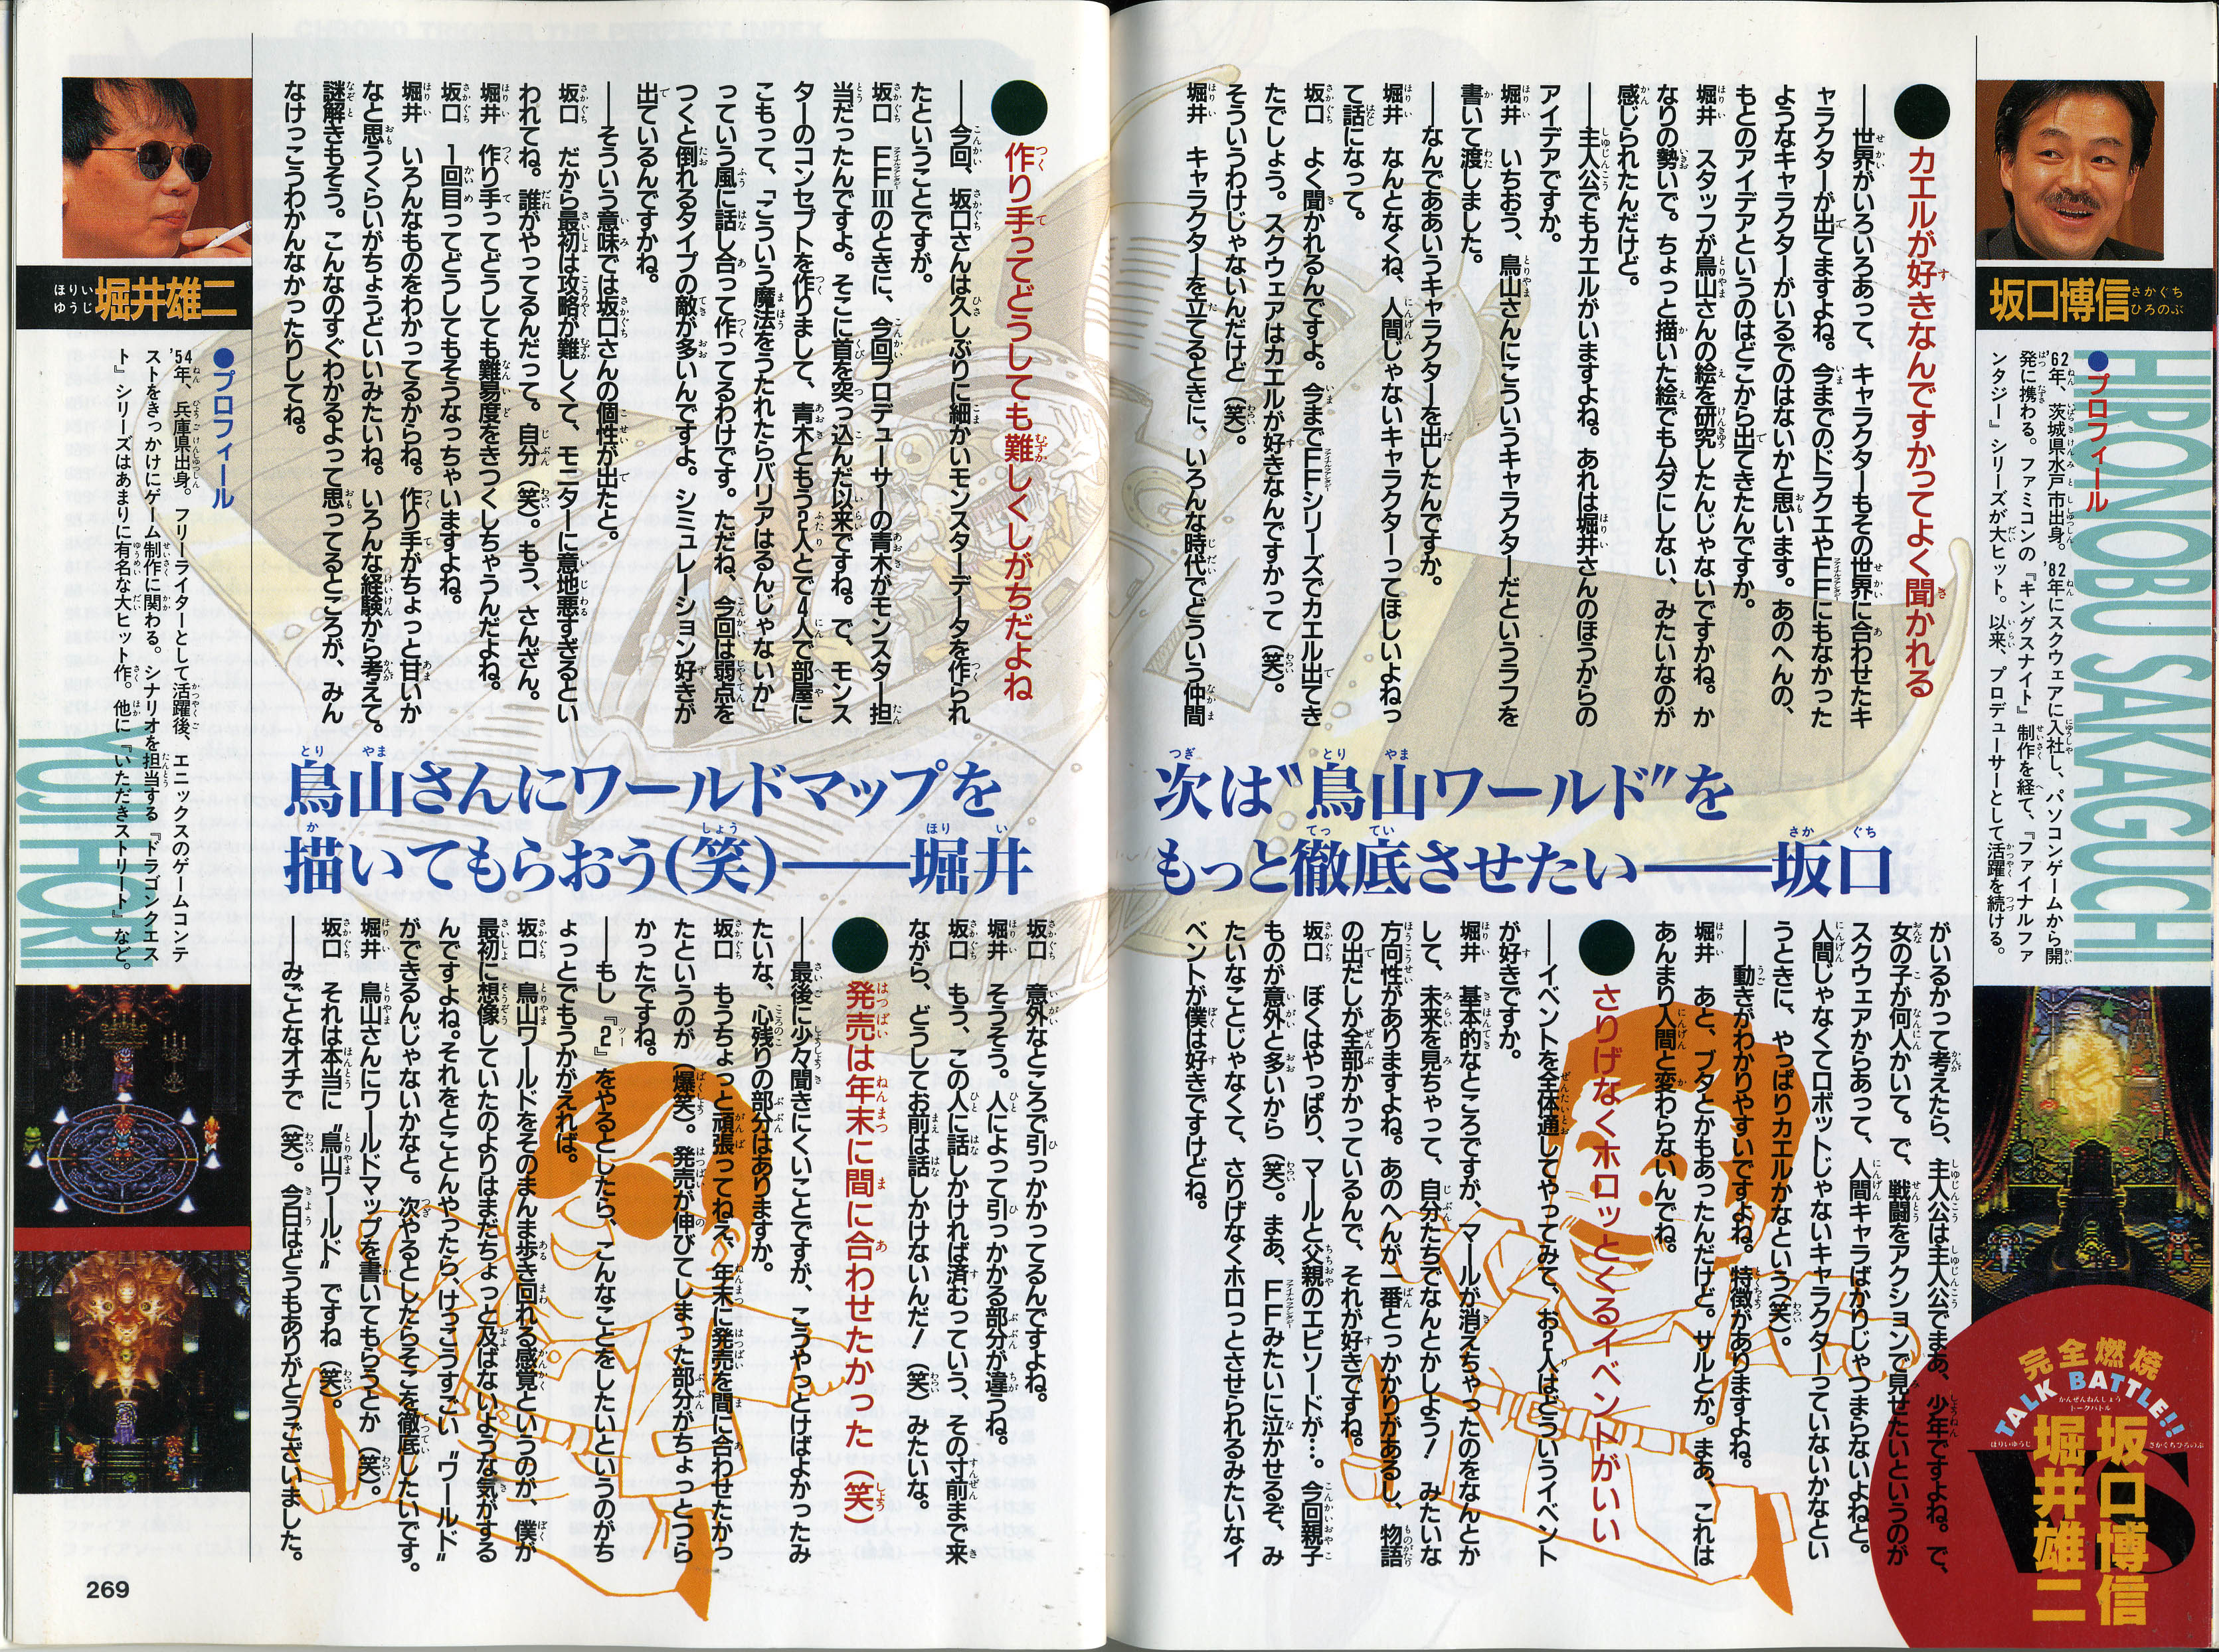 坂口博信
さかぐち
ひろのぶ
HIRONOBU SAKAGUCHI
●プロフィール
'62年、茨城県水戸市出身。'82年にスクウェアに入社し、パソコンゲームから開
発に携わる。ファミコンの『キングスナイト』制作を経て、『ファイナルファ
ンタジー』シリーズが大ヒット。以来、プロデューサーとして活躍を続ける。
完全燃焼
かんぜんねんしょう
TALK BATTLE!!
トークバトル
坂口博信
さかぐちひろのぶ
VS
堀井雄二
ほりいゆうじ
●カエルが好きなんですかってよく聞かれる
――世界がいろいろあって、キャラクターもその世界に合わせたキ
ャラクターが出てますよね。今までのドラクエやFFにもなかった
ようなキャラクターがいるでのはないかと思います。あのへんの、
もとのアイデアというのはどこから出てきたんですか。
堀井　スタッフが鳥山さんの絵を研究したんじゃないですかね。か
なりの勢いで。ちょっと描いた絵でもムダにしない、みたいなのが
感じられたんだけど。
――主人公でもカエルがいますよね。あれは堀井さんのほうからの
アイデアですか。
堀井　いちおう、鳥山さんにこういうキャラクターだというラフを
書いて渡しました。
――なんでああいうキャラクターを出したんですか。
堀井　なんとなくね、人間じゃないキャラクターってほしいよねっ
て話になって。
坂口　よく聞かれるんですよ。今までFFシリーズでカエル出てき
たでしょう。スクウェアはカエルが好きなんですかって（笑）。
そういうわけじゃないんだけど（笑）。
堀井　キャラクターを立てるときに、いろんな時代でどういう仲間
次は〝鳥山ワールド〟を
もっと徹底させたい――坂口
がいるかって考えたら、主人公は主人公でまあ、少年ですよね。で、
女の子が何人かいて。で、戦闘をアクションで見せたいというのが
スクウェアからあって、人間キャラばかりじゃつまらないよねと。
人間じゃなくてロボットじゃないキャラクターっていないかなとい
うときに、やっぱりカエルかなという（笑）。
――動きがわかりやすいですよね。特徴がありますよね。
堀井　あと、ブタとかもあったんだけど。サルとか。まあ、これは
あんまり人間と変わらないんでね。
●さりげなくホロッとくるイベントがいい
――イベントを全体通してやってみて、お2人はどういうイベント
が好きですか。
堀井　基本的なところですが、マールが消えちゃったのをなんとか
して、未来を見ちゃって、自分たちでなんとかしよう！　みたいな
方向性がありますよね。あのへんが一番とっかかりがあるし、物語
の出だしが全部かかっているんで、それが好きですね。
坂口　ぼくはやっぱり、マールと父親のエピソードが…。今回親子
ものが意外と多いから（笑）。まあ、FFみたいに泣かせるぞ、み
たいなことじゃなくて、さりげなくホロっとさせられるみたいなイ
ベントが僕は好きですけどね。
●作り手ってどうしても難しくしがちだよね
――今回、坂口さんは久しぶりに細かいモンスターデータを作られ
たということですが。
坂口　FFⅢのときに、今回プロデューサーの青木がモンスター担
当だったんですよ。そこに首を突っ込んだ以来ですね。で、モンス
ターのコンセプトを作りまして、青木ともう2人とで4人で部屋に
こもって、「こういう魔法をうたれたらバリアはるんじゃないか」
っていう風に話し合って作ってるわけです。ただね、今回は弱点を
つくと倒れるタイプの敵が多いんですよ。シミュレーション好きが
出ているんですかね。
――そういう意味では坂口さんの個性が出たと。
坂口　だから最初は攻略が難しくて、モニターに意地悪すぎるとい
われてね。誰がやってるんだって。自分（笑）。もう、さんざん。
堀井　作り手ってどうしても難易度をきつくしちゃうんだよね。
坂口　1回目ってどうしてもそうなっちゃいますよね。
堀井　いろんなものをわかってるからね。作り手がちょっと甘いか
なと思うくらいがちょうどいいみたいね。いろんな経験から考えて。
謎解きもそう。こんなのすぐわかるよって思ってるところが、みん
なけっこうわかんなかったりしてね。
鳥山さんにワールドマップを
描いてもらおう（笑）――堀井
坂口　意外なところで引っかかってるんですよね。
堀井　そうそう。人によって引っかかる部分が違うね。
坂口　もう、この人に話しかければ済むっていう、その寸前まで来
ながら、どうしてお前は話しかけないんだ！（笑）みたいな。
●発売は年末に間に合わせたかった（笑）
――最後に少々聞きにくいことですが、こうやっとけばよかったみ
たいな、心残りの部分はありますか。
坂口　もうちょっと頑張ってねえ、年末に発売を間に合わせたかっ
たというのが（爆笑）。発売が伸びてしまった部分がちょっとつら
かったですね。
――もし『2』をやるとしたら、こんなことをしたいというのがち
ょっとでもうかがえれば。
坂口　鳥山ワールドをそのまんま歩き回れる感覚というのが、僕が
最初に想像していたのよりはまだちょっと及ばないような気がする
んですよね。それをとことんやったら、けっこうすごい〝ワールド〟
ができるんじゃないかなと。次やるとしたらそこを徹底したいです。
堀井　鳥山さんにワールドマップを書いてもらうとか（笑）。
坂口　それは本当に〝鳥山ワールド〟ですね（笑）。
――みごとなオチで（笑）。今日はどうもありがとうございました。
堀井雄二
ほりい
ゆうじ
●プロフィール
'54年、兵庫県出身。フリーライターとして活躍後、エニックスのゲームコンテ
ストをきっかけにゲーム制作に関わる。シナリオを担当する『ドラゴンクエス
ト』シリーズはあまりに有名な大ヒット作。他に『いただきストリート』など。
YUJI HORII
269